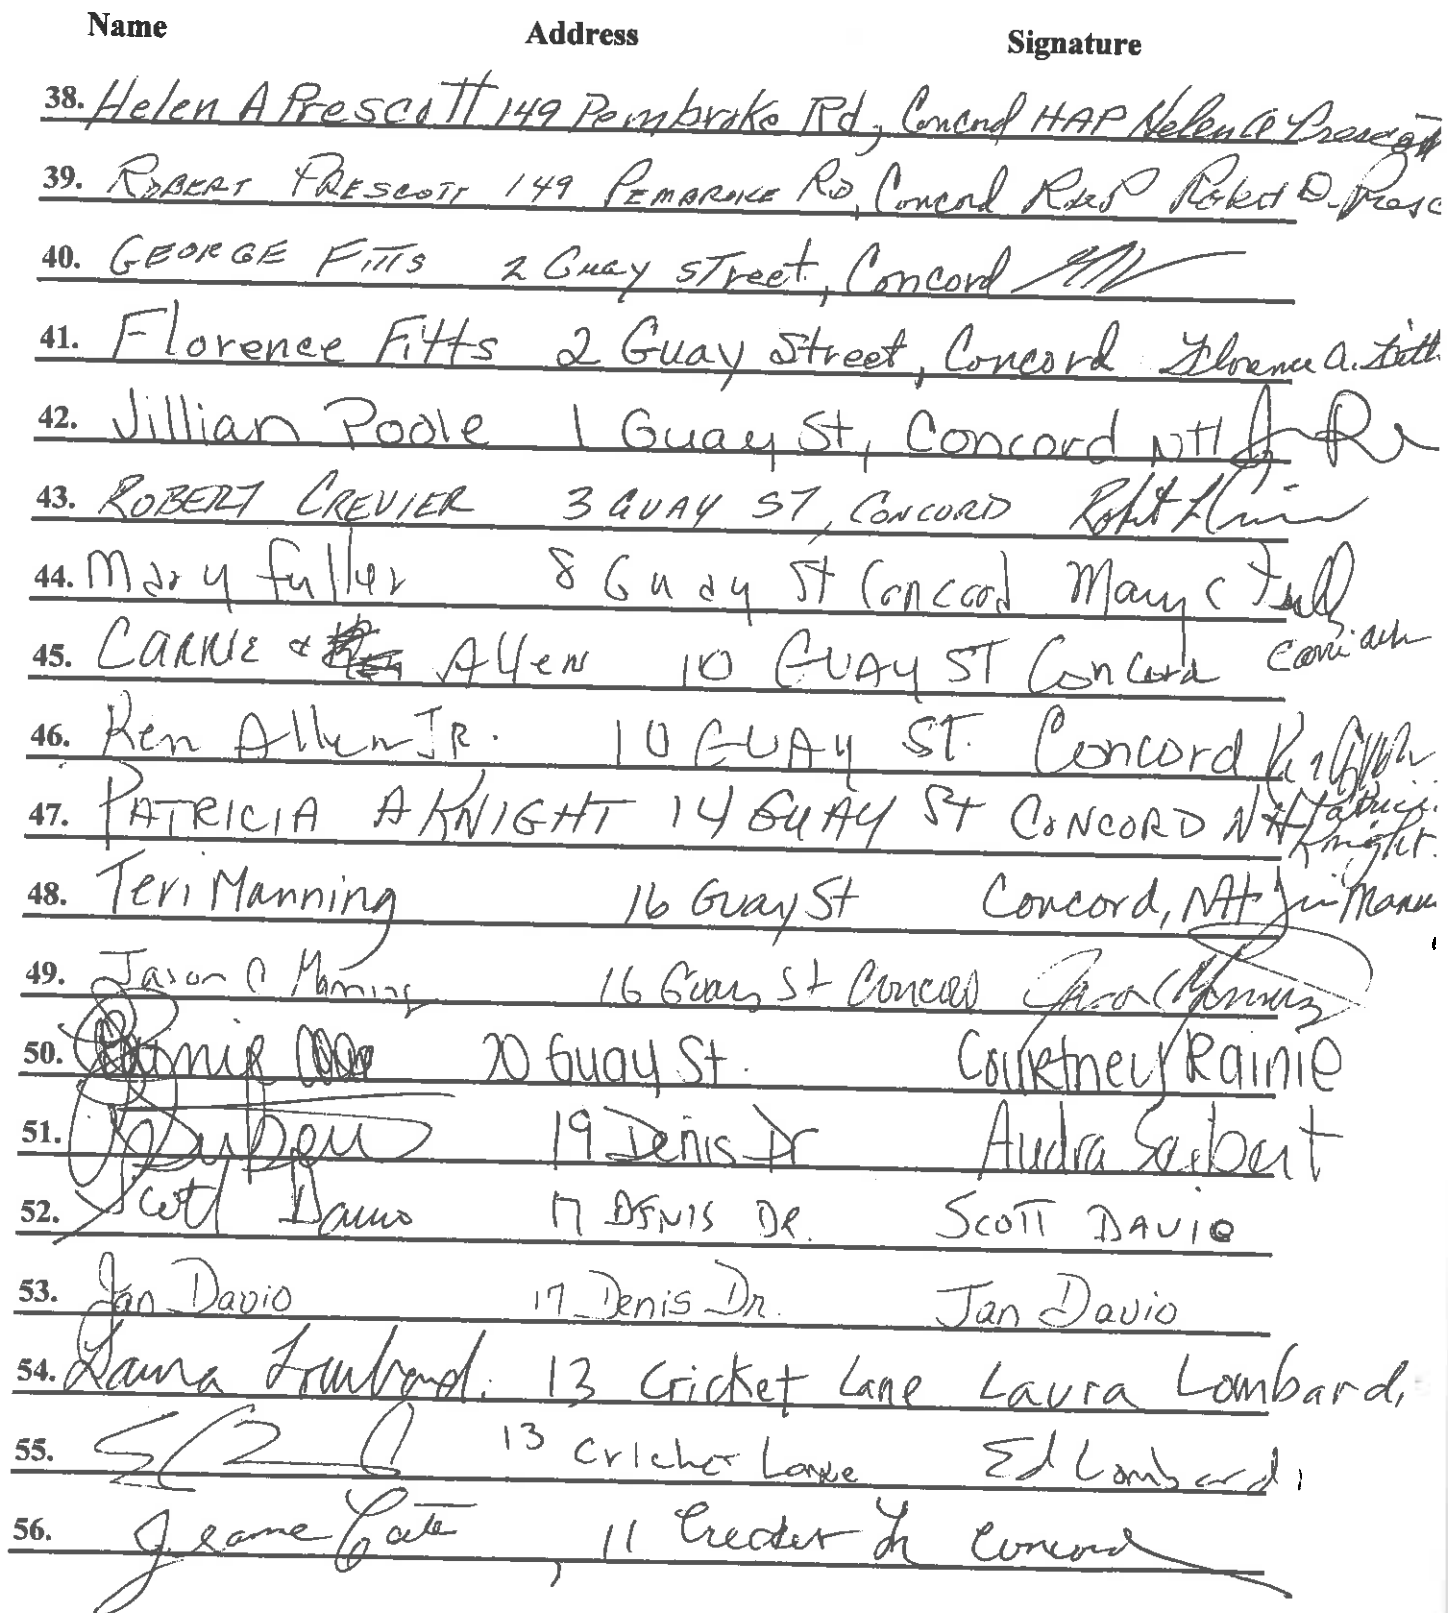 Name Address Signature
38. Helen A Prescott 149 Pembroke Rd, Concord HAP Helen A Prescott
39. ROBERT PRESCOTT 149 PEMBROKE RD, Concord Robert D. Presc
40. GEORGE FITTS 2 Guay STreet, Concord
41. Florence Fitts 2 Guay Street, Concord Florence A. Fitts
42. Jillian Poole 1 Guay St, Concord NH
43. ROBERT CREVIER 3 GUAY ST, CONCORD
44. Mary fuller 8 Guay St Concord Mary C Full
45. CARRIE & Allen 10 GUAY ST Concord
46. Ken Allen JR. 10 GUAY ST. Concord
47. PATRICIA A KNIGHT 14 GUAY St CONCORD NH Patricia Knight.
48. Teri Manning 16 Guay St Concord, NH Teri Mann
49. Jason C Manning 16 Guay St Concord Jason C Manning
50. 20 Guay St. Courtney Rainie
51. 19 Denis Dr Audra Seibert
52. Scott Davio 17 DENIS DR. SCOTT DAVIO
53. Jan Davio 17 Denis Dr. Jan Davio
54. Laura Lombard. 13 Cricket Lane Laura Lombard,
55. 13 Cricket Lane Ed Lombard,
56. Jeanne Cate, 11 Cricket Ln Concord